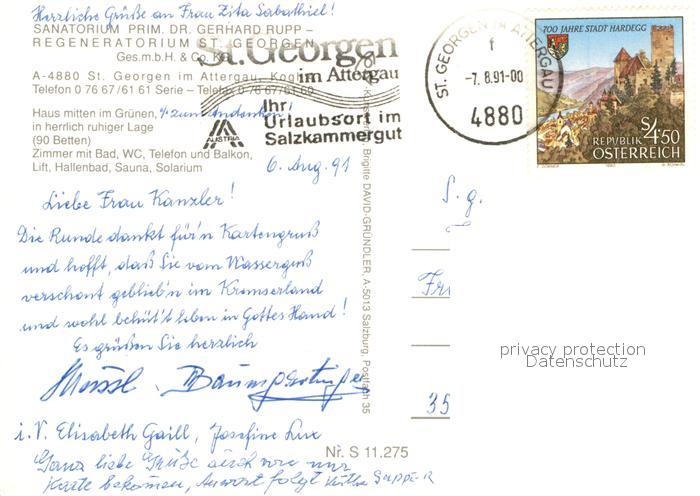 Herzliche Grüße an Frau Zita Sabathiel!
SANATORIUM PRIM. DR. GERHARD RUPP –
REGENERATORIUM ST. GEORGEN
Ges.m.b.H. & Co. KG
A-4880 St. Georgen im Attergau, Kogl
Telefon 0 76 67/61 61 Serie – Telefax 0 76 67/61 60
Haus mitten im Grünen, & zum Andenken!
in herrlich ruhiger Lage
(90 Betten)
Zimmer mit Bad, WC, Telefon und Balkon,
Lift, Hallenbad, Sauna, Solarium
St. Georgen
im Attergau
Ihr
Urlaubsort im
Salzkammergut
AUSTRIA
ST. GEORGEN IM ATTERGAU
f
-7. 8.91-00
4880
700 JAHRE STADT HARDEGG
S 4.50
REPUBLIK
ÖSTERREICH
6. Aug. 91
Liebe Frau Kanzler!
Die Runde dankt für'n Kartengruß
und hofft, daß Sie vom Wasserguß
verschont geblieb'n im Kremserland
und wohl behüt't leben in Gottes Hand!
Es grüßen Sie herzlich
i.V. Elisabeth Gaill, Josefine Lux
Ganz liebe Grüße auch von mir
Karte bekommen, Antwort folgt
Brigitte DAVID-GRÜNDLER, A-5013 Salzburg, Postfach 35
Nr. S 11.275
S. g.
Fr
35
privacy protection
Datenschutz